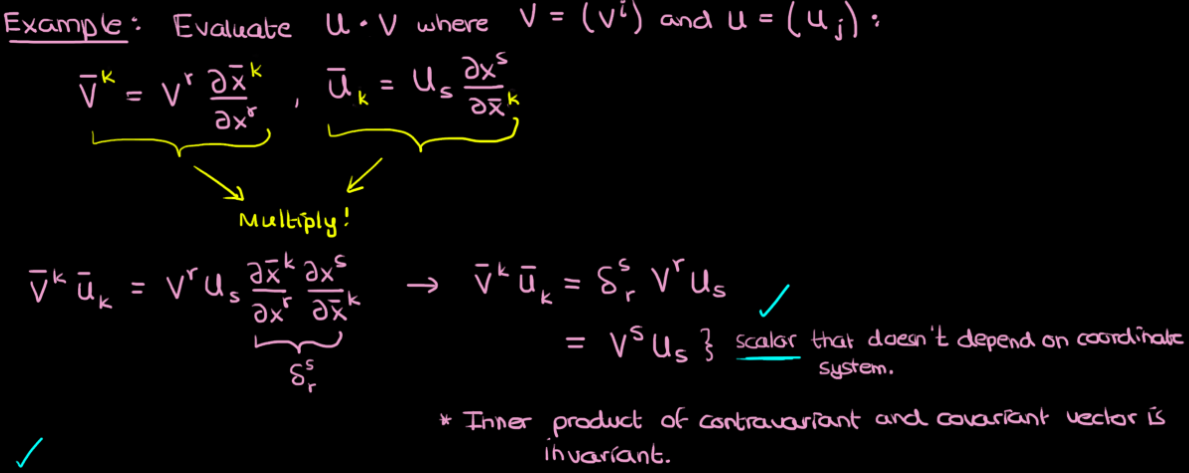 Example: Evaluate U · V where V = (Vⁱ) and U = (Uⱼ) :
V̄ᵏ = Vʳ ∂x̄ᵏ/∂xʳ , Ūₖ = Uₛ ∂xˢ/∂x̄ᵏ
Multiply!
V̄ᵏ Ūₖ = Vʳ Uₛ ∂x̄ᵏ/∂xʳ ∂xˢ/∂x̄ᵏ → V̄ᵏ Ūₖ = δˢᵣ Vʳ Uₛ
δˢᵣ
= Vˢ Uₛ } scalar that doesn't depend on coordinate
system.
* Inner product of contravariant and covariant vector is
invariant.